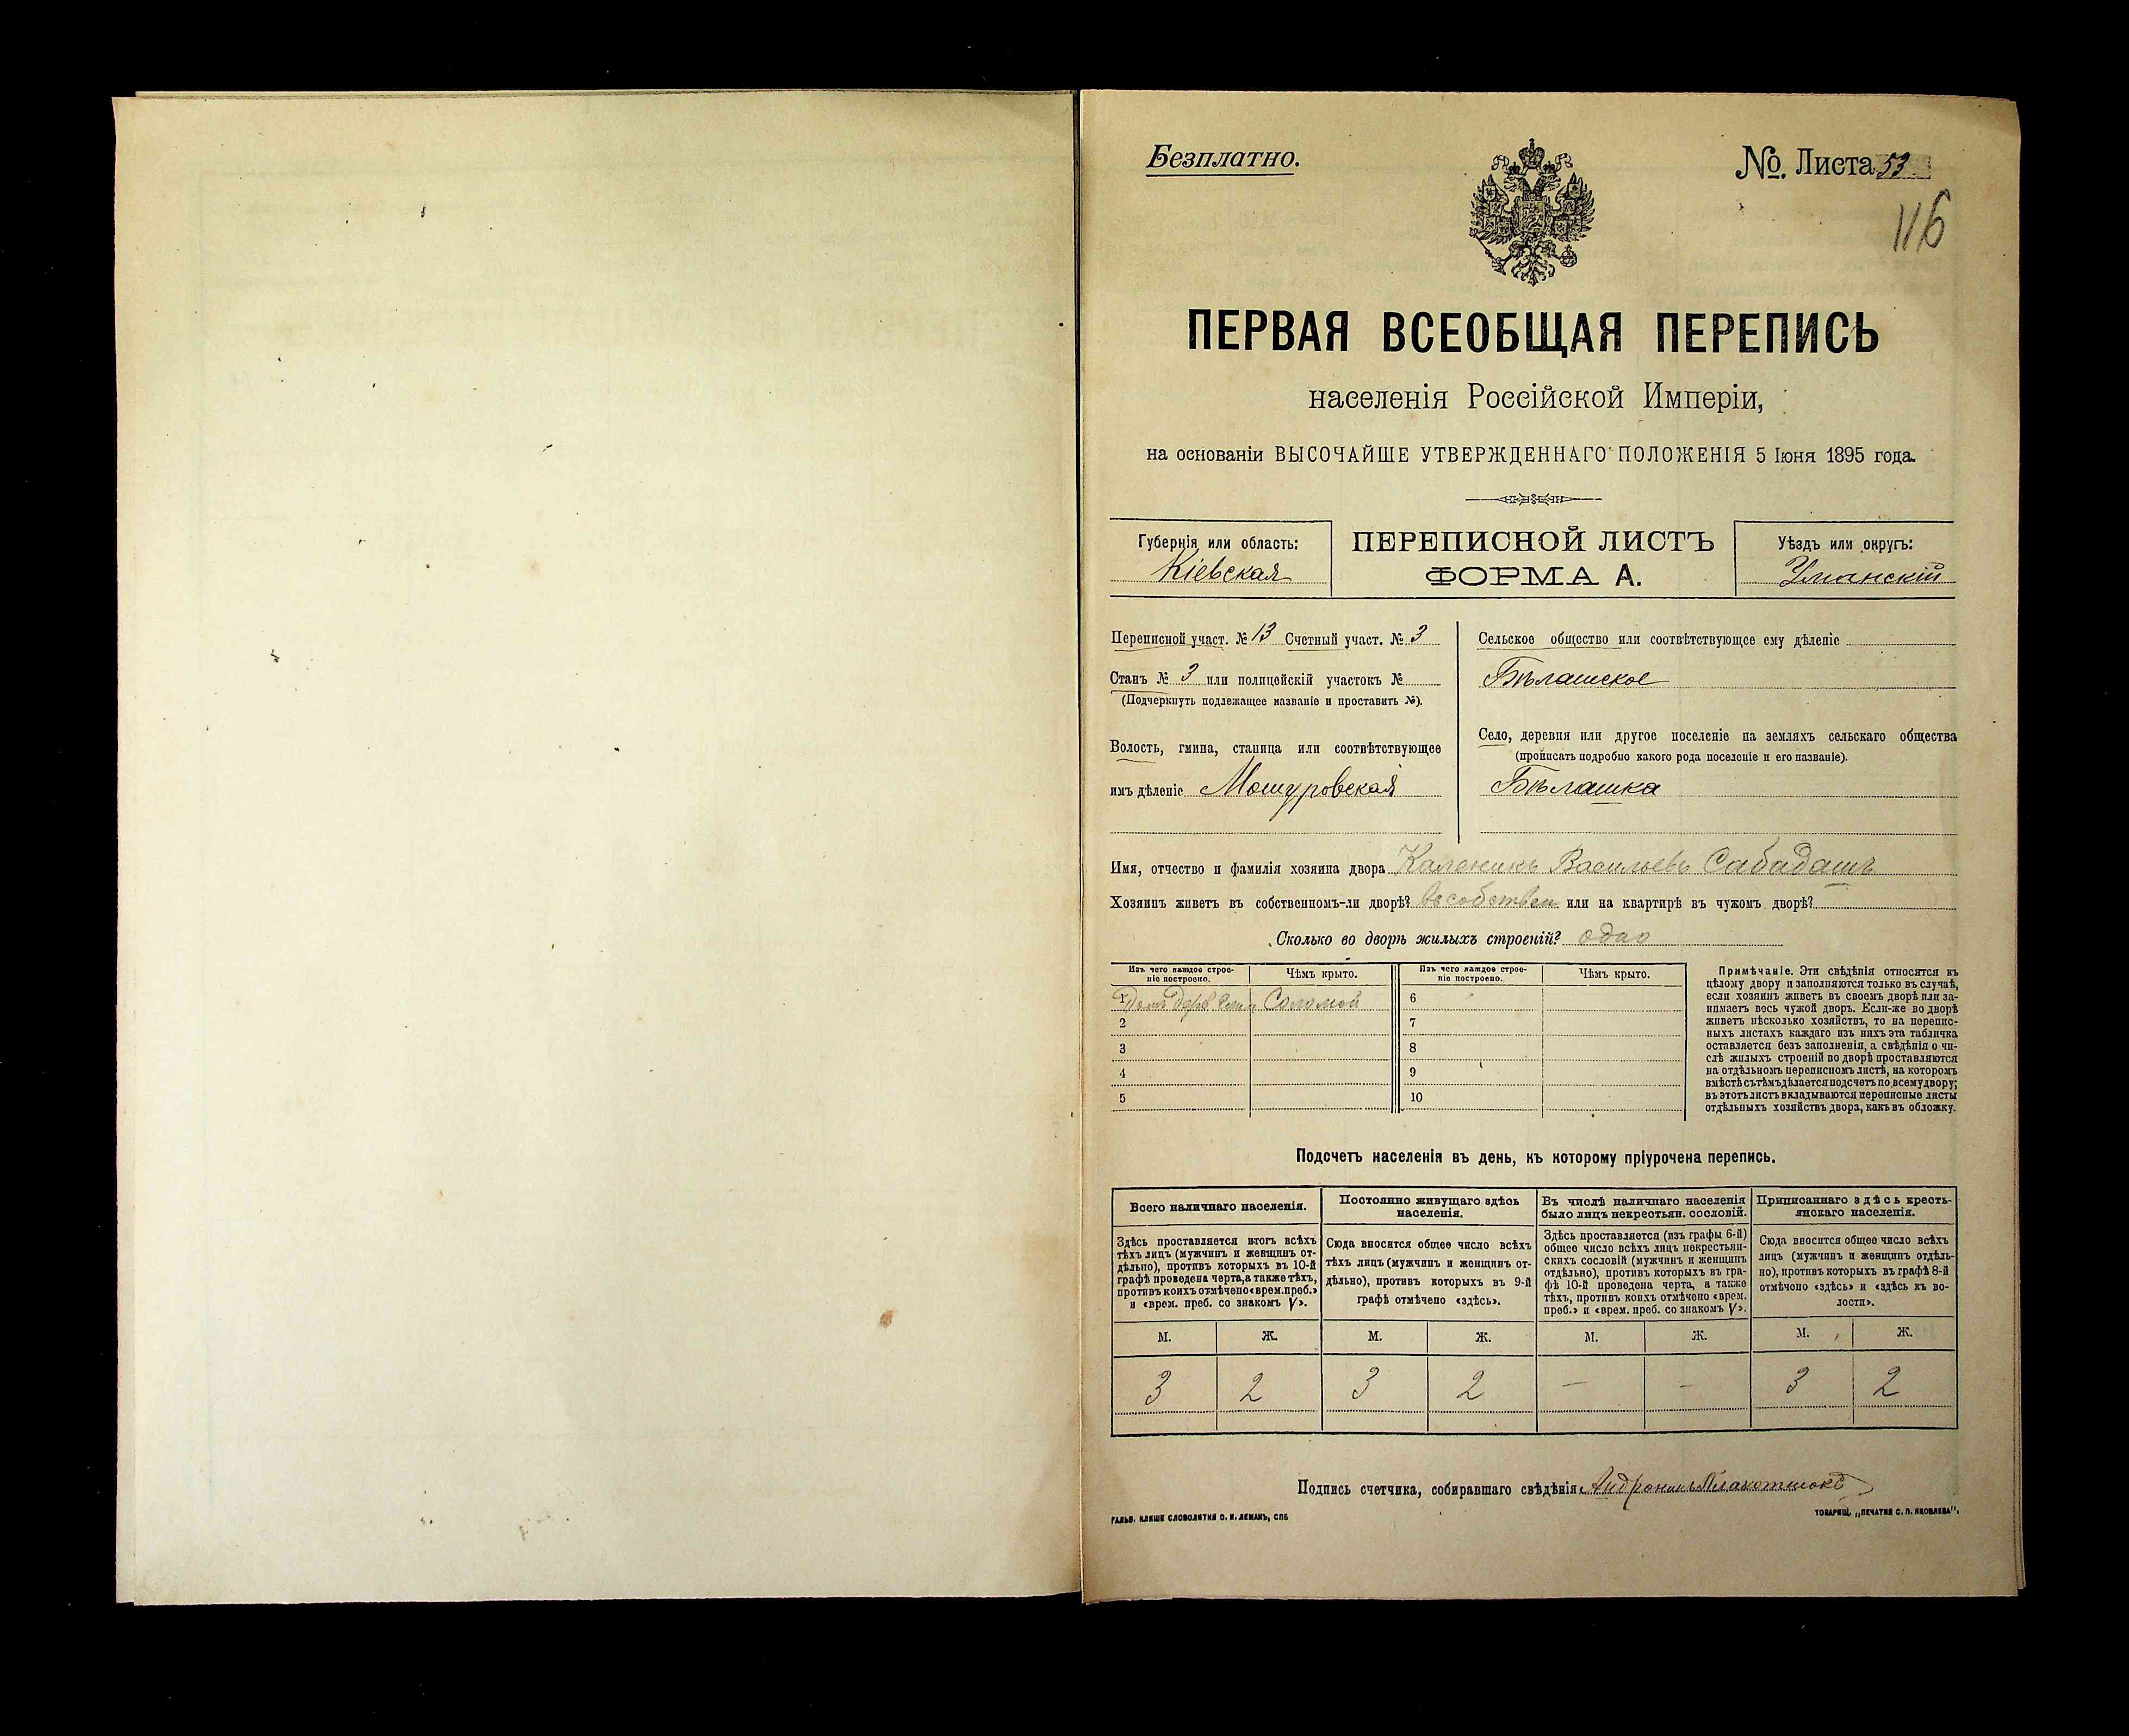 Безплатно.
№. Листа 53
116
ПЕРВАЯ ВСЕОБЩАЯ ПЕРЕПИСЬ
населенія Россійской Имперіи,
на основаніи ВЫСОЧАЙШЕ УТВЕРЖДЕННАГО ПОЛОЖЕНІЯ 5 Іюня 1895 года.
Губернія или область:
Кіевская
ПЕРЕПИСНОЙ ЛИСТЪ
ФОРМА А.
Уѣздъ или округъ:
Уманскій
Переписной участ. № 13 Счетный участ. № 3
Станъ № 3 или полицейскій участокъ №
(Подчеркнуть подлежащее названіе и проставить №).
Волость, гмина, станица или соотвѣтствующее
имъ дѣленіе Мошуровская
Сельское общество или соотвѣтствующее ему дѣленіе
Бѣлашское
Село, деревня или другое поселеніе на земляхъ сельскаго общества
(прописать подробно какого рода поселеніе и его названіе).
Бѣлашка
Имя, отчество и фамилія хозяина двора Каленикъ Васильевъ Сабадашъ
Хозяинъ живетъ въ собственномъ-ли дворѣ? въ собствен или на квартирѣ въ чужомъ дворѣ?
Сколько во дворѣ жилыхъ строеній? одно
Изъ чего каждое строе-
ніе построено.
Чѣмъ крыто.
Изъ чего каждое строе-
ніе построено.
Чѣмъ крыто.
1 Соломой
2
3
4
5
6
7
8
9
10
Примѣчаніе. Эти свѣдѣнія относятся къ
цѣлому двору и заполняются только въ случаѣ,
если хозяинъ живетъ въ своемъ дворѣ или за-
нимаетъ весь чужой дворъ. Если-же во дворѣ
живетъ нѣсколько хозяйствъ, то на перепис-
ныхъ листахъ каждаго изъ нихъ эта табличка
оставляется безъ заполненія, а свѣдѣнія о чи-
слѣ жилыхъ строеній во дворѣ проставляются
на отдѣльномъ переписномъ листѣ, на которомъ
вмѣстѣ съ тѣмъ дѣлается подсчетъ по всему двору;
въ этотъ листъ вкладываются переписные листы
отдѣльныхъ хозяйствъ двора, какъ въ обложку.
Подсчетъ населенія въ день, къ которому пріурочена перепись.
Всего наличнаго населенія.
Постоянно живущаго здѣсь
населенія.
Въ числѣ наличнаго населенія
было лицъ некрестьян. сословій.
Приписаннаго здѣсь кресть-
янскаго населенія.
Здѣсь проставляется итогъ всѣхъ
тѣхъ лицъ (мужчинъ и женщинъ от-
дѣльно), противъ которыхъ въ 10-й
графѣ проведена черта, а также тѣхъ,
противъ коихъ отмѣчено «врем. преб.»
и «врем. преб. со знакомъ V».
Сюда вносится общее число всѣхъ
тѣхъ лицъ (мужчинъ и женщинъ от-
дѣльно), противъ которыхъ въ 9-й
графѣ отмѣчено «здѣсь».
Здѣсь проставляется (изъ графы 6-й)
общее число всѣхъ лицъ некрестьян-
скихъ сословій (мужчинъ и женщинъ
отдѣльно), противъ которыхъ въ гра-
фѣ 10-й проведена черта, а также
тѣхъ, противъ коихъ отмѣчено «врем.
преб.» и «врем. преб. со знакомъ V».
Сюда вносится общее число всѣхъ
лицъ (мужчинъ и женщинъ отдѣль-
но), противъ которыхъ въ графѣ 8-й
отмѣчено «здѣсь» и «здѣсь къ во-
лости».
М. Ж. М. Ж. М. Ж. М. Ж.
3 2 3 2 — — 3 2
Подпись счетчика, собиравшаго свѣдѣнія
ГАЛЬВ. КЛИШЕ СЛОВОЛИТНИ О. И. ЛЕМАНЪ, СПБ
ТОВАРИЩ. „ПЕЧАТНЯ С. П. ЯКОВЛЕВА",